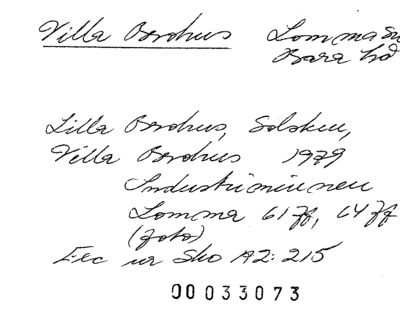 Villa Borohus Lomma sn
Bara hd
Lilla Borohus, Solsken,
Villa Borohus 1979
Industriminnen
Lomma 61ff, 64ff
(foto)
Exc ur Sko A2:215
00033073